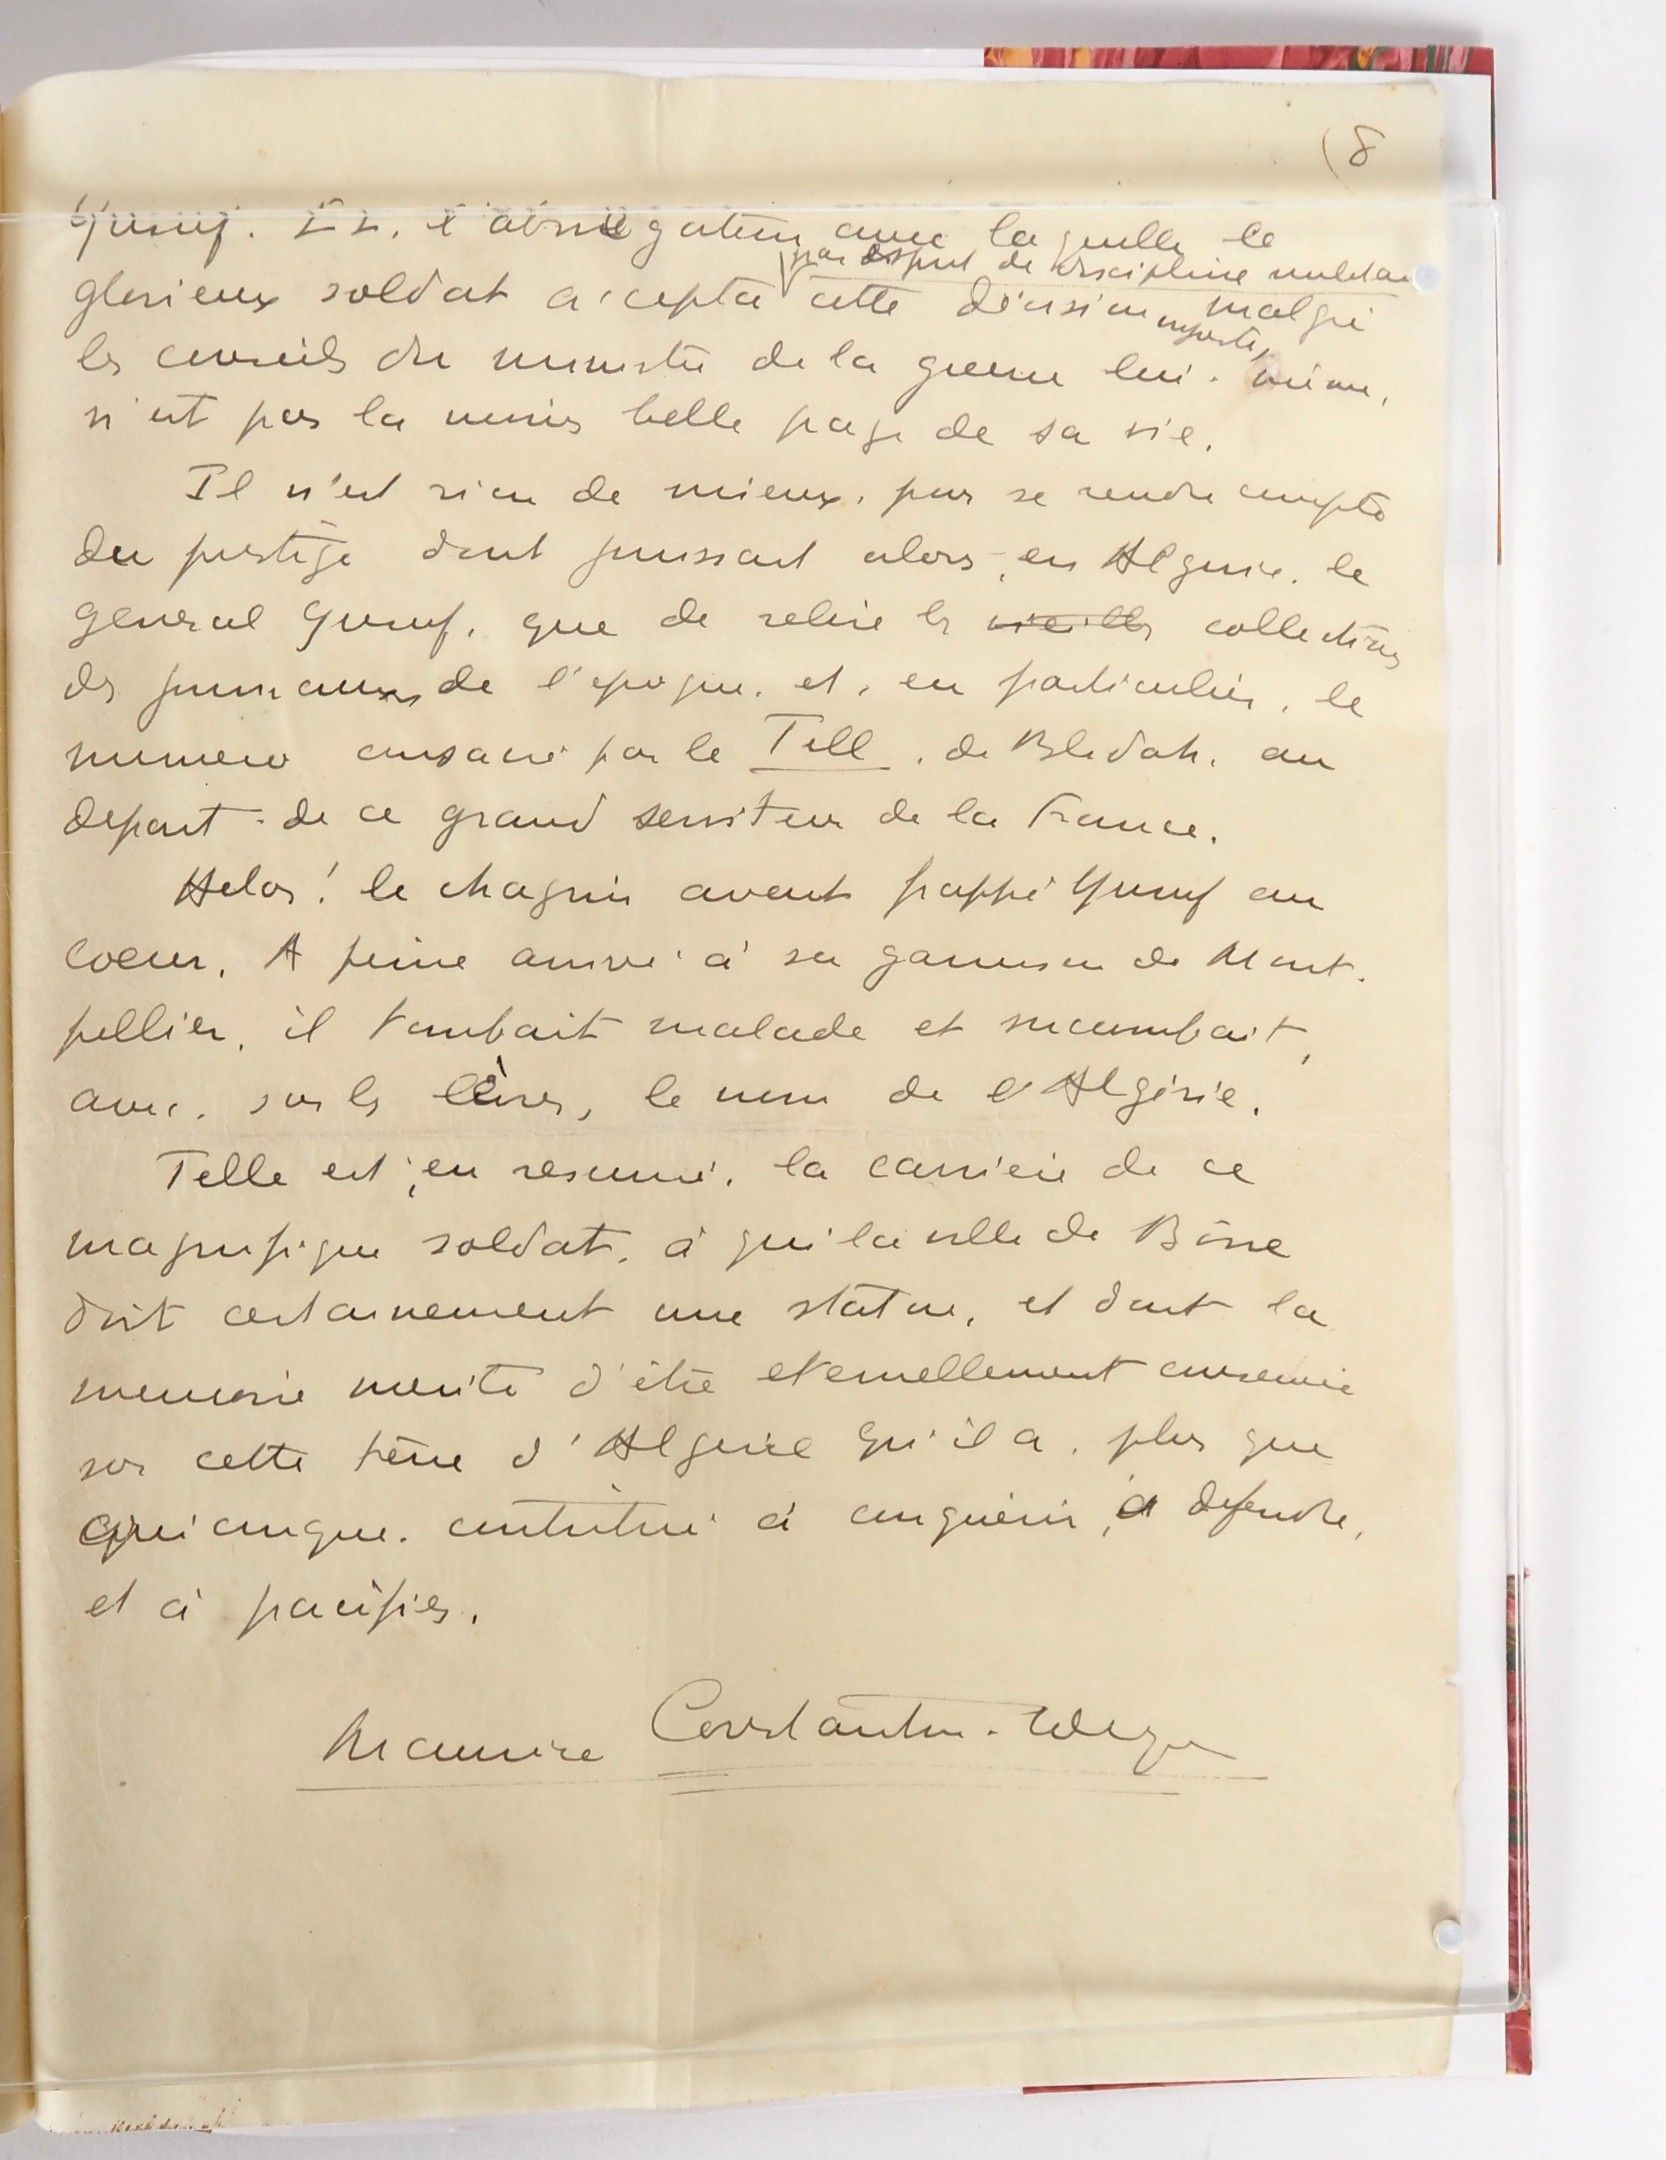 (8
Yusuf. Et, l'abnégation avec laquelle le
par esprit de discipline militaire
glorieux soldat accepta cette décision malgré
injuste,
les conseils du ministre de la guerre lui-même,
n'est pas la moins belle page de sa vie.
Il n'est rien de mieux, pour se rendre compte
du prestige dont jouissait alors, en Algerie, le
général Yusuf, que de relire les vieilles collections
des journaux de l'epoque, et, en particulier, le
numero consacré par le Tell, de Blidah, au
depart de ce grand serviteur de la France.
Helas! le chagrin avait frappé Yusuf au
coeur. A peine arrivé à sa garnison de Mont-
pellier, il tombait malade et succombait,
avec, sur les lèvres, le nom de l'Algérie.
Telle est, en resumé, la carrière de ce
magnifique soldat, à qui la ville de Bône
doit certainement une statue, et dont la
memoire merite d'être eternellement conservée
sur cette terre d'Algerie qu'il a, plus que
quiconque, contribué à conquérir, à defendre,
et à pacifier.
Maurice Constantin-Weyer